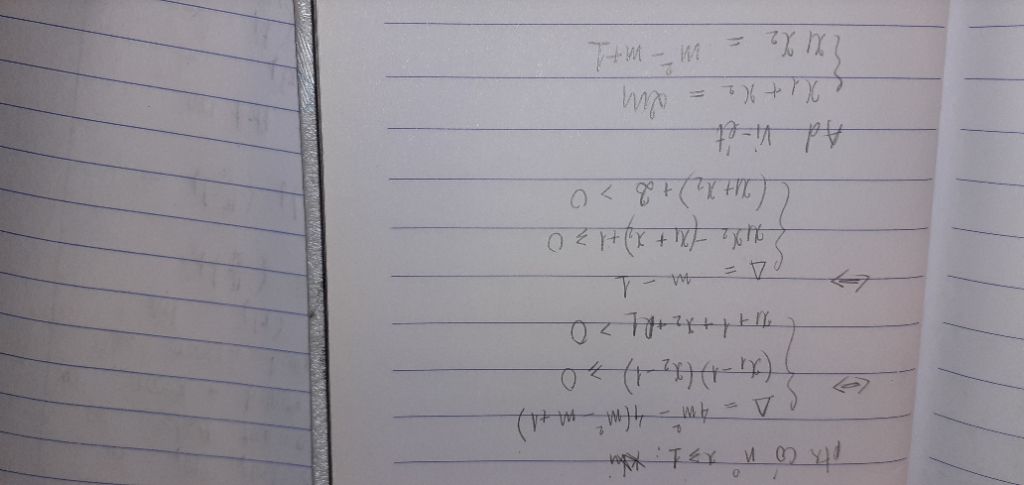 ptr có n° x ≥ 1 :
⇔ { Δ = 4m² - 4(m² - m + 1)
(x1 - 1)(x2 - 1) ≥ 0
x1 + 1 + x2 + 1 > 0
⇔ { Δ = m - 1
x1x2 - (x1 + x2) + 1 ≥ 0
(x1 + x2) + 2 > 0
Ad Vi-ét
{ x1 + x2 = 2m
x1 x2 = m² - m + 1